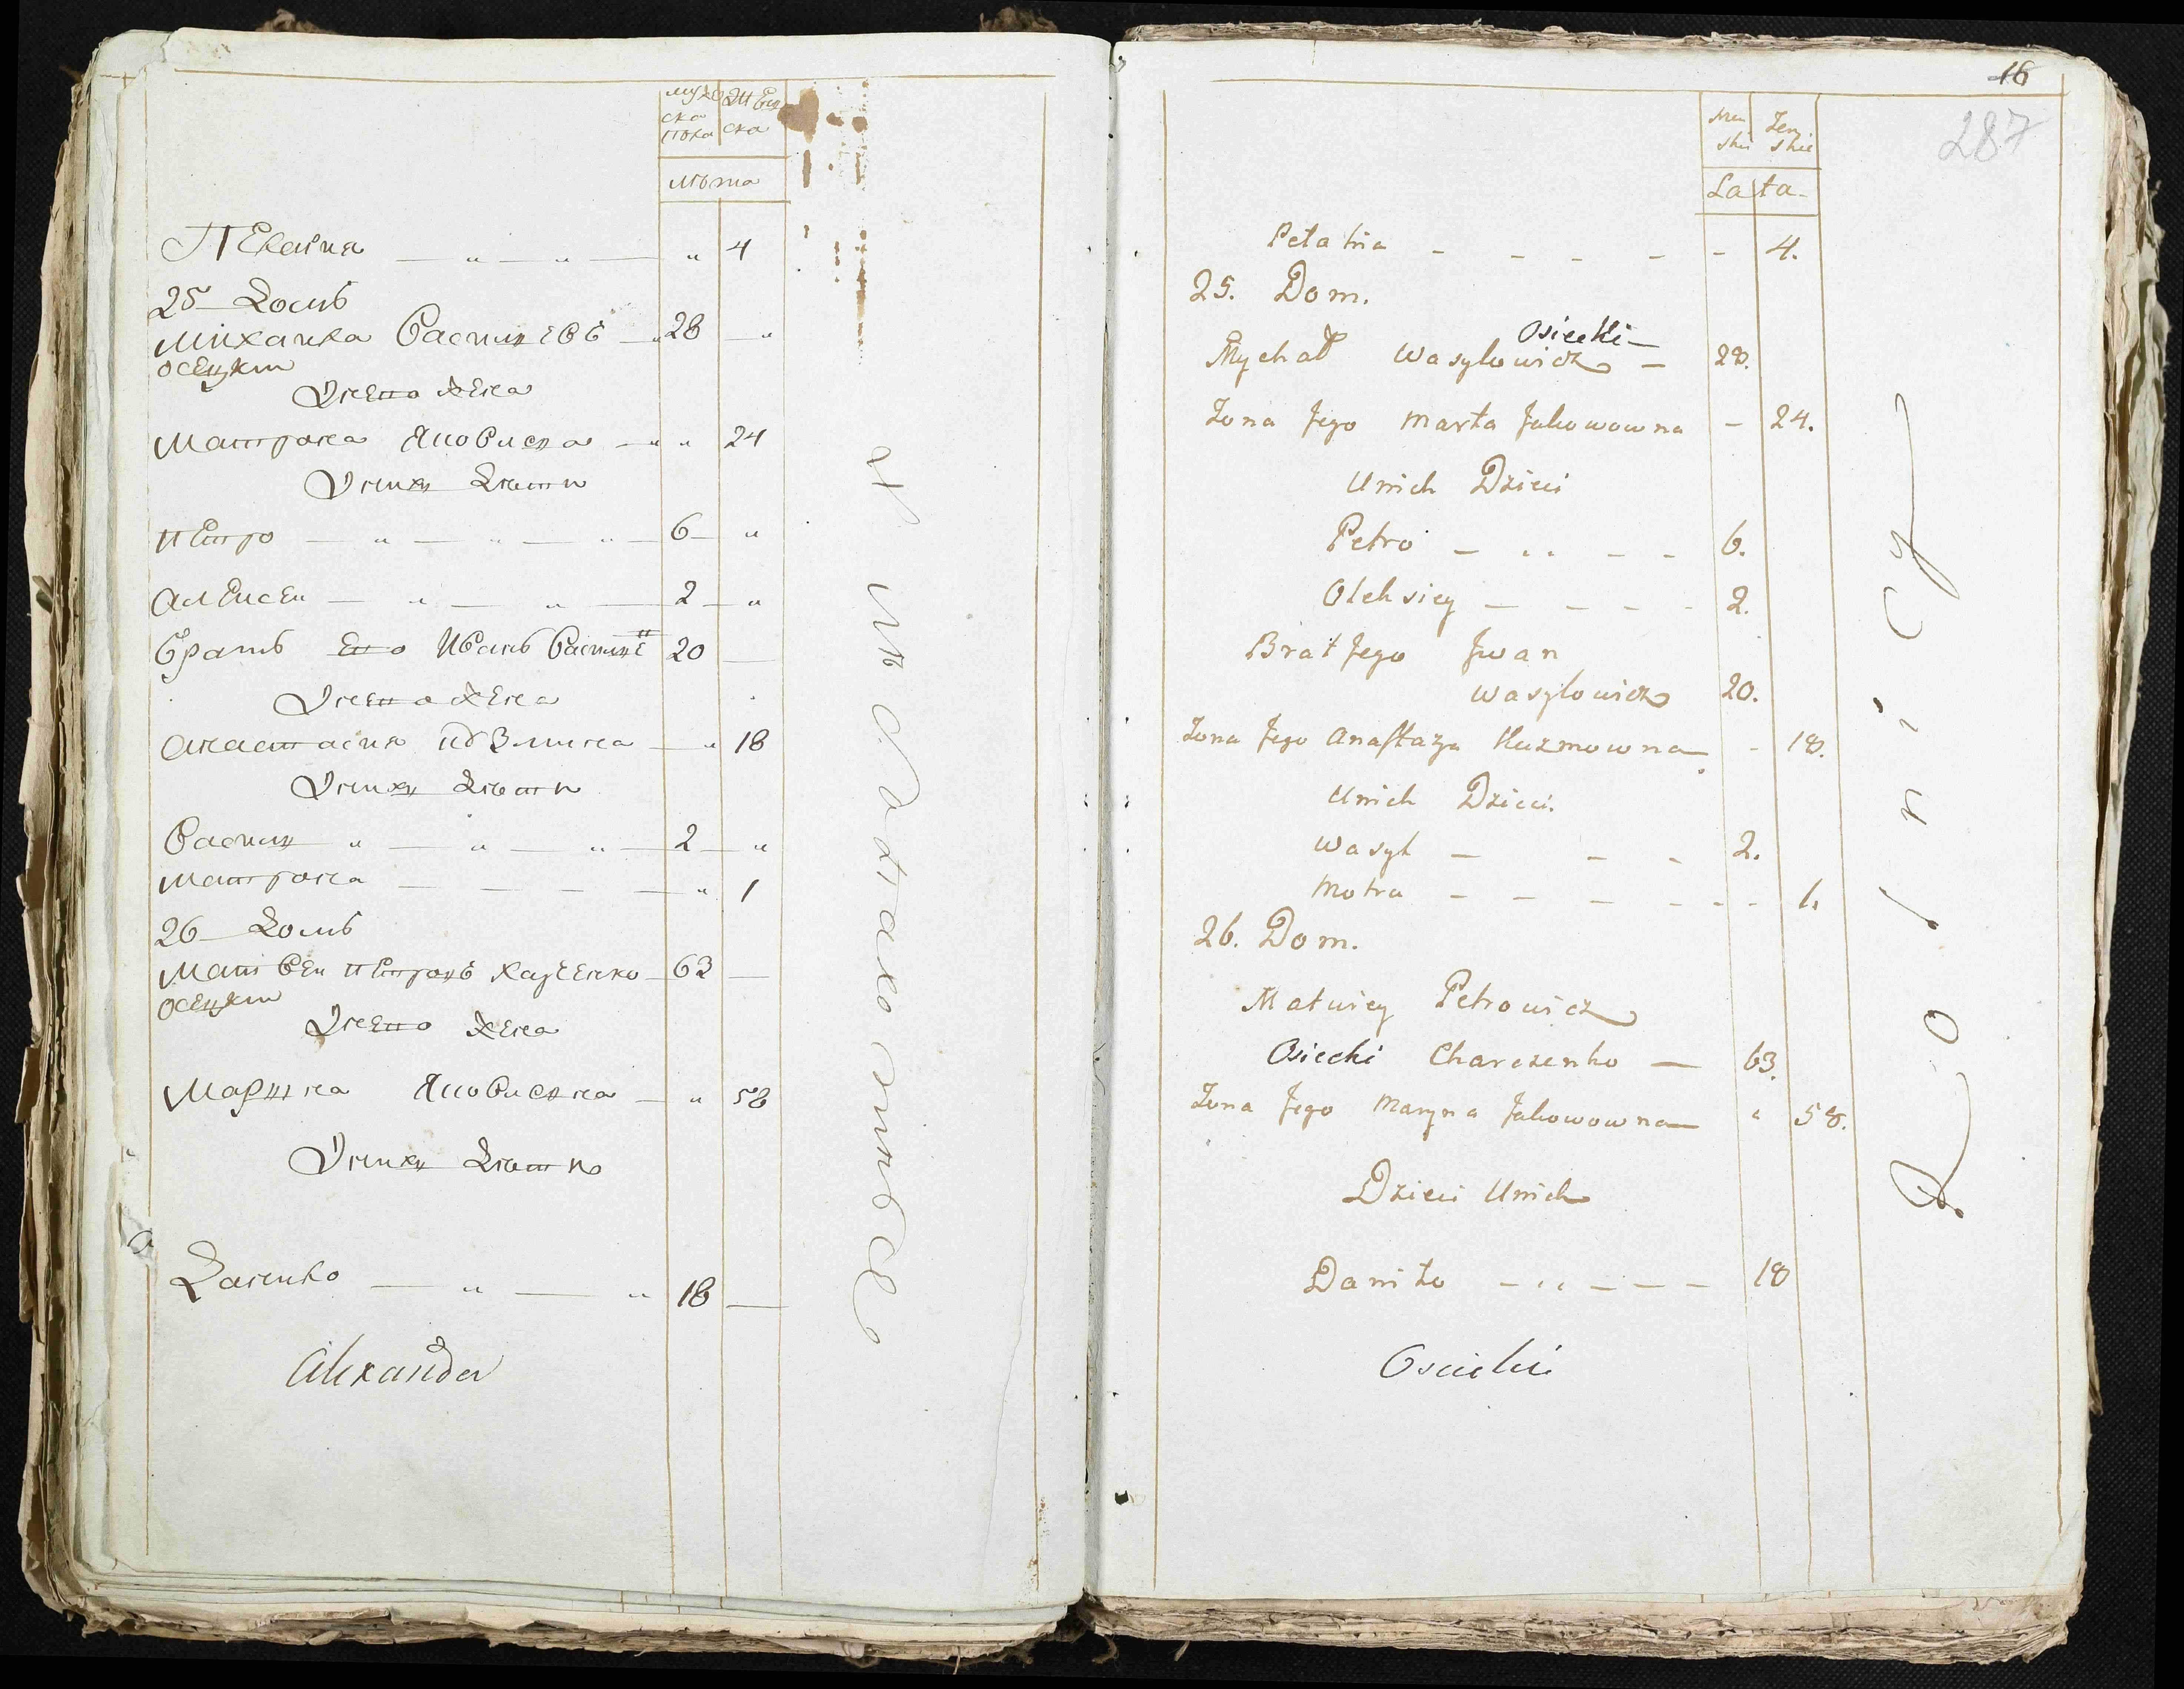 мужеска пола
женска
лѣта
Пелагия 4
25 Домъ
Михаила Василевъ 28
Осецкий
У него жена
Матрона Яковлева 24
У них дѣти
Петро 6
Алексей 2
Братъ его Иванъ Василев 20
У него жена
Анастасия Кузмина 18
У них дѣти
Василь 2
Матрона 1
26 Домъ
Матвей Петровъ Харченко 63
Осецкий
У него жена
Марина Яковлевна 58
У них дѣти
Данило 18
Alexander
16
287
Męskie
Żeńskie
Lata
Pelahia 4.
25. Dom.
Osiecki
Mychał Wasylowicz 28.
Żona Jego Marta Jakowowna 24.
Unich Dzieci
Petro 6.
Oleksiey 2.
Brat Jego Jwan
Wasylowicz 20.
Żona Jego Anastazya Kuzmowna 18.
Unich Dzieci.
Wasyl 2.
Motra 1.
26. Dom.
Matwiey Petrowicz
Osiecki Charczenko 63.
Żona Jego Maryna Jakowowna 58.
Dzieci Unich
Daniło 18
Osiecki
Rolnicy